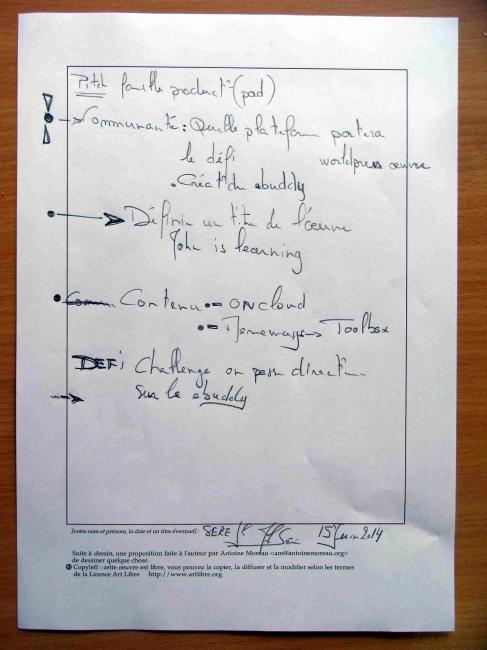 Pitch feuille product° (pad)
Communauté : Quelle plateforme portera
le défi wordpress œuvre
. Créat° du ebuddy
Définir un titre de l'œuvre
John is learning
Contenu - ONCLOUD
- Toolbox
DEFi Challenge on passe direct
sur le ebuddy
[votre nom et prénom, la date et un titre éventuel] : SERE 15 Juin 2014
Suite à dessin, une proposition faite à l'auteur par Antoine Moreau <am@antoinemoreau.org>
de dessiner quelque chose.
Copyleft : cette oeuvre est libre, vous pouvez la copier, la diffuser et la modifier selon les termes
de la Licence Art Libre http://www.artlibre.org